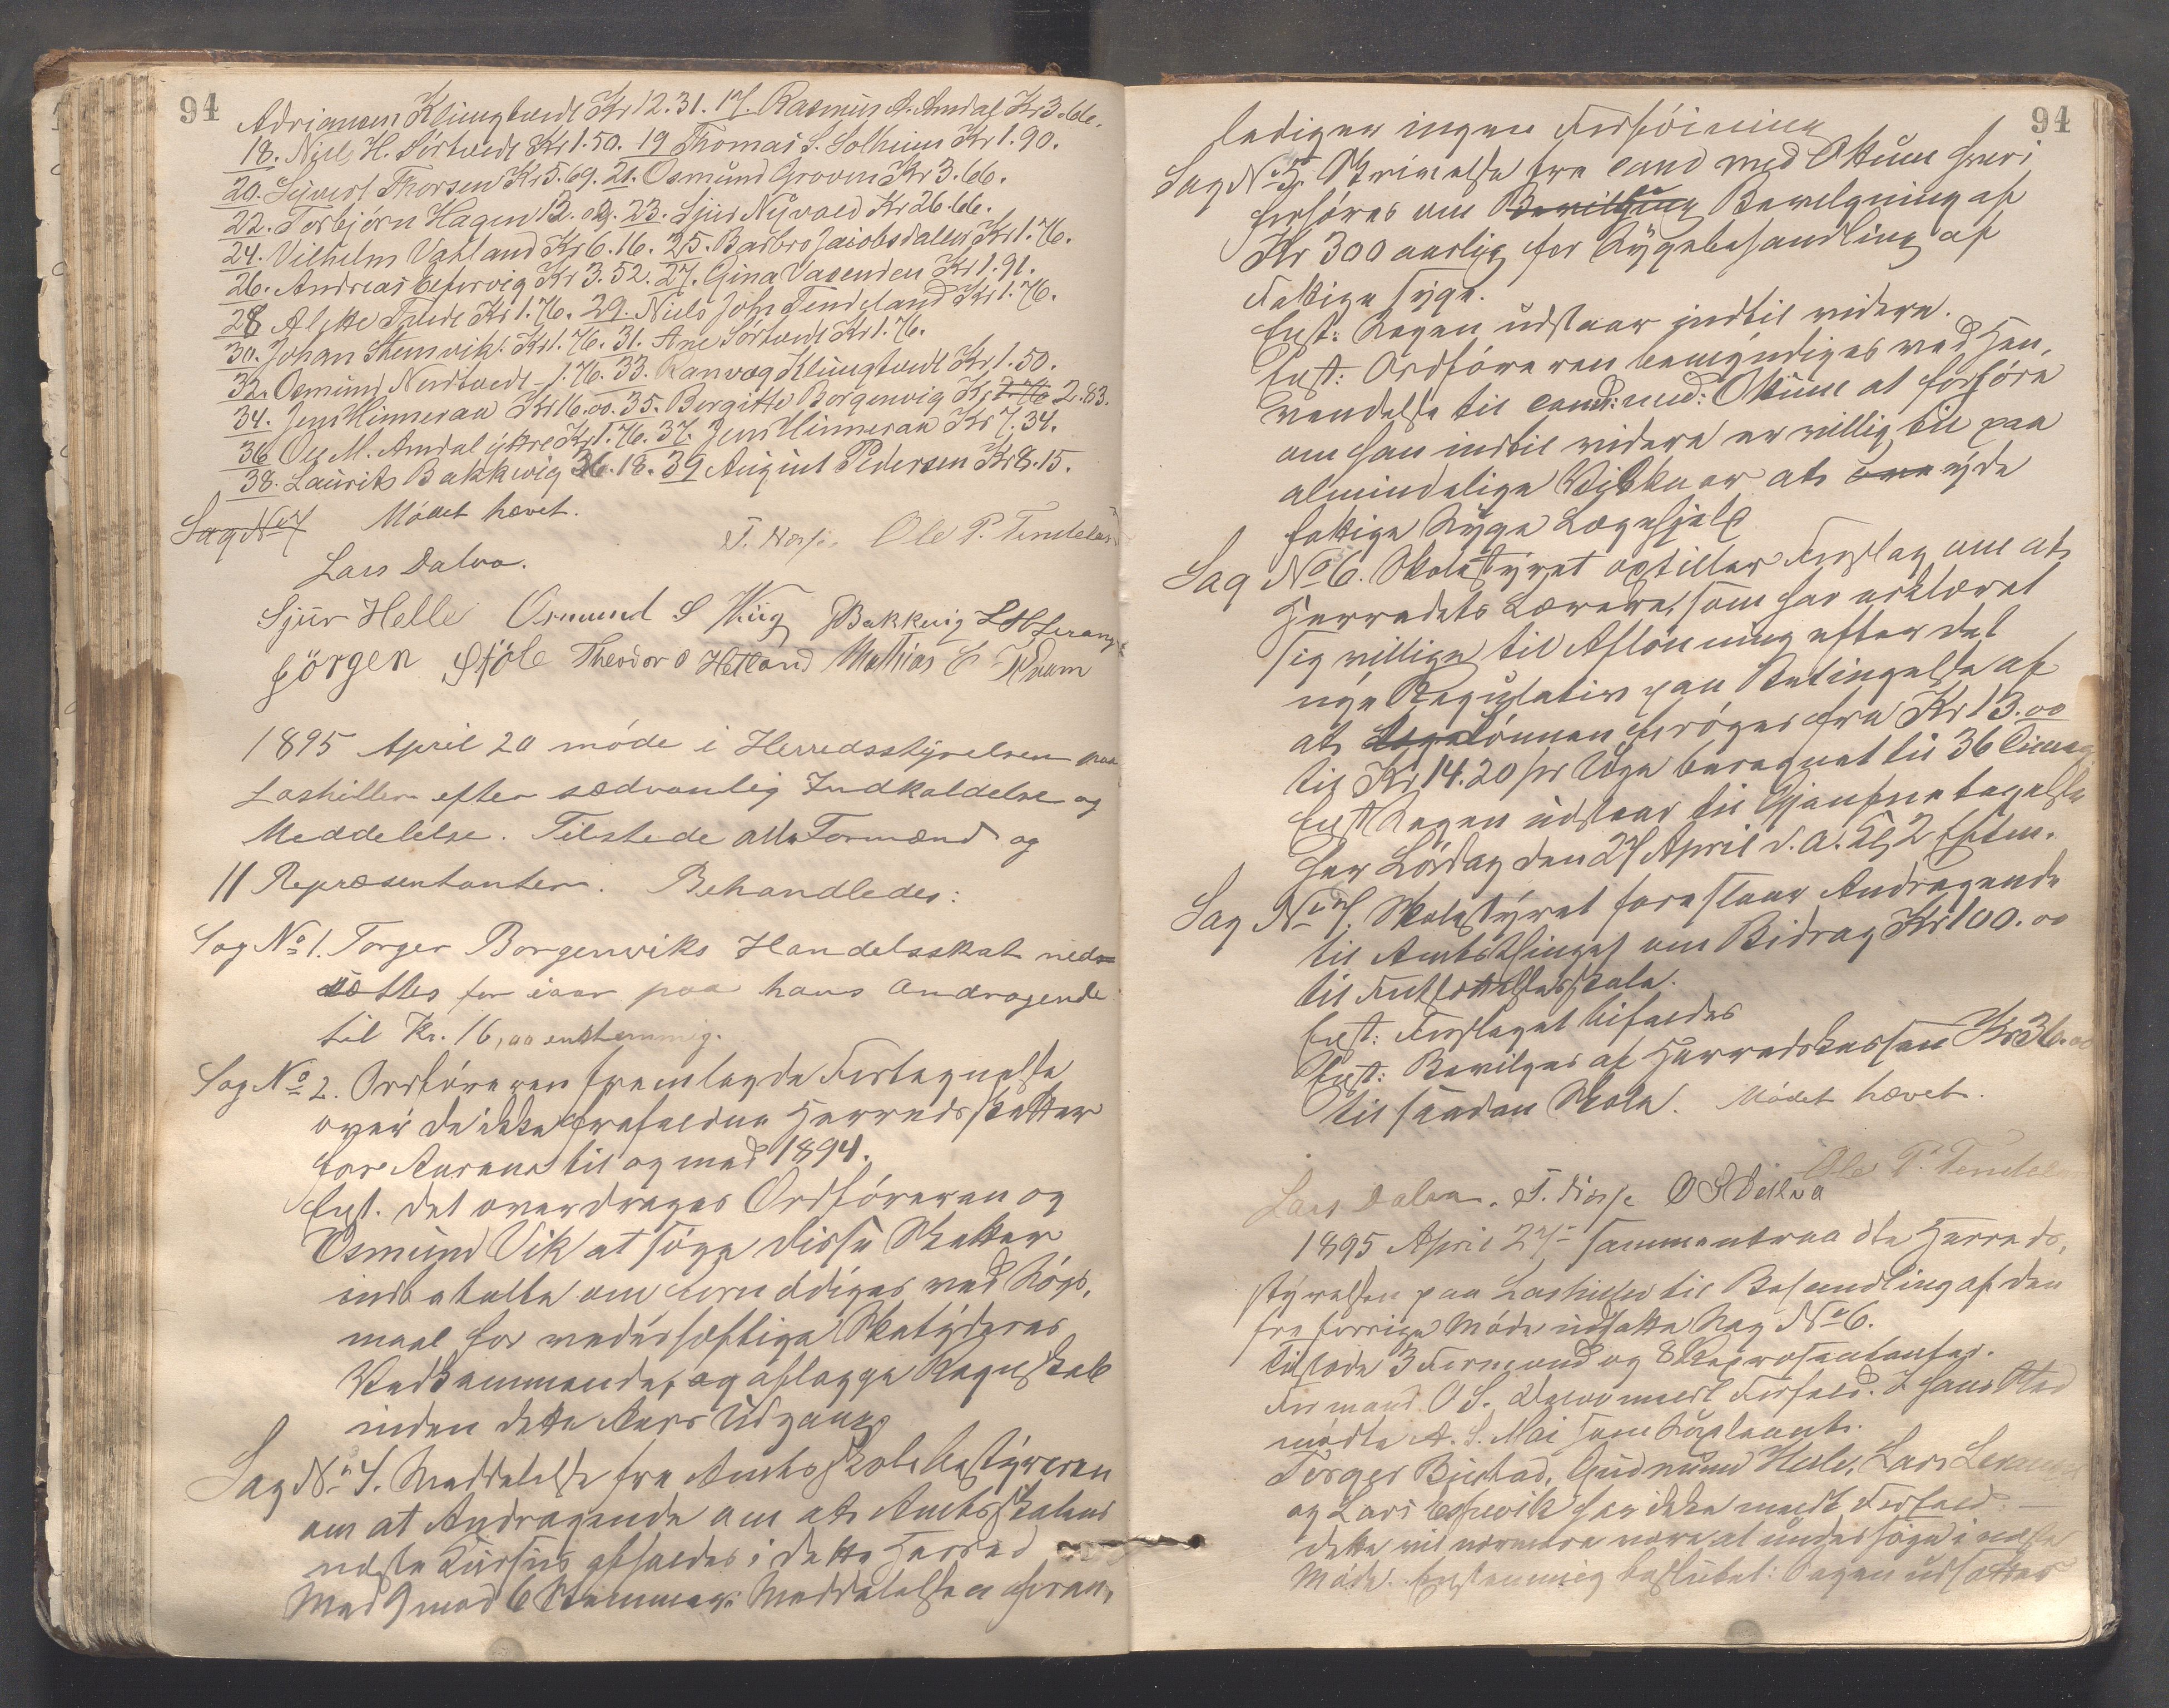 94
Adrianson Klungtvedt Kr 12.31. 17. Rasmus A. Amdal Kr 3.66.
18. Niel H. Sørtvedt Kr 1.50. 19 Thomas S. Solheim Kr 1.90.
20. Sjvert Thorsen Kr 5.69. 21. Osmund Groven Kr 3.66.
22. Torbjørn Hagen 12.09. 23. Sjur Nÿvold Kr 26.66.
24. Vilhelm Vatland Kr 6.16. 25. Barbro Jacobsdatter Kr 1.76.
26. Andreas Kr 3.52. 27. Gina Vasenden Kr 1.91.
28 Alette Tvedt Kr 1.76. 29. Niels Joh Tendeland Kr 1.76.
30. Johan Stenvik Kr 1.76. 31. Ane Sørtvedt Kr 1.76.
32. Osmund Nordtvedt - 1.76. 33. Ranvæg Klungtvedt Kr 1.50.
34. Jens Hinneraa Kr 16.00. 35. Bergitte Borgenvig Kr 2.83.
36 Ole M. Amdal ÿttre Kr 1.76. 37. Jens Hinneraa Kr 7.34.
38. Laurits Bakkevig 36.18. 39 August Pedersen Kr 8.15.
Sag No 7 Mødet hævet.
Ole P. Tendeland
Lars Dalva.
Sjur Helle Osmund S Viig Bakkevig
Jørgen Støle Theodor O Hetland Mathias E Kvam
1895 April 20 møde i Herredsstÿrelsen paa
Lashillen efter sædvanlig Indkaldelse og
Meddelelse. Tilstede alle Formænd og
11 Repræsentanter. Behandledes:
Sag No 1. Torger Borgenwiks Handelsskat ned-
sættes for iaar paa hans Andragende
til Kr. 16,00 enstemmig.
Sag No 2. Ordføreren fremlagde Fortegnelse
over de ikke frafaldne Herredsskatter
for Aarene til og med 1894.
Enst. det overdrages Ordføreren og
Osmund Vik at søge disse Skatter
indbetalte om fornødiges ved Søgs-
maal for vederhæftige Skatÿderes
Vedkommende, og aflægge Regnskab
inden dette Aars Udgang
Sag No 4. Meddelelse fra Amtsskolebestÿreren
om at Andragende om at Amtsskolens
næste Kursus afholdes i dette Herred
Med 9 mod 6 Stemmer: Meddelelsen foran-
94
lediger ingen Forføining
Sag No 5. Skrivelse fra cand med Økum hvori
forhøres om Bevilgning Bevilgning af
Kr 300 aarlig for Sÿgebehandling af
Fattige sÿge.
Enst: Sagen udstaar indtil videre.
Enst: Ordføreren bemÿndiges ved Hen-
vendelse til cand: med: Økum at forhøre
om han indtil videre er villig til paa
almindelige Vilkaar at ÿde
fattige Sÿge Lægehjælp
Sag No 6. Skolestÿret opstiller Forslag om at
Herredets Lærere, som har erklæret
sig villige til Aflønning efter det
nÿe Regulativ paa Betingelse af
at Lønnen forøges fra Kr 13.00
til Kr 14.20 pr Uge beregnet til 36 Timer
Enst Sagen udstaar til Gjenforetagelse
her Lørdag den 27 April d. a. Kl 2 Eftm.
Sag No 7. Skolestÿret foreslaar Andragende
til Amtsthinget om Bidrag Kr 100.00
til Fortsættelsesskole.
Enst: Forslaget bifaldes
Enst: Bevilges af Herredskassen Kr 36.00
til saadan Skole. Mødet hævet.
Ole P. Tendeland
Lars Dalva.
1895 April 27 sammentraadte Herreds-
stÿrelsen paa Lashillen til Behandling af den
fra forrige Møde udsatte Sag No 6.
tilstede 3 Formænd og 8 Repræsentanter.
Formand O S. meldt Forfald. I hans Sted
mødte A. S. Mai som Suppleant.
Torger Bjestad, Gudmund Helle, Lars
og Lars Espevik har ikke meldt Forfald. —
dette vil nærmere være at undersøge i næste
Møde. Enstemmig besluttet: Sagen udsættes